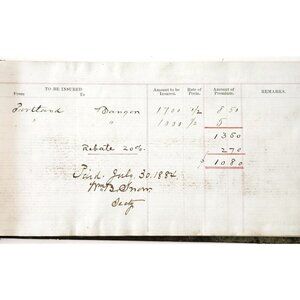 TO BE INSURED Amount to be Insured. Rate of Prem. Amount of Premium. REMARKS.
From To
Portland Bangor 1700 1/2 8 50
" " 1000 1/2 5
13 50
Rebate 20% 2 70
$ 10 80
Paid July 30, 1884
Wm B. Snow
Secty